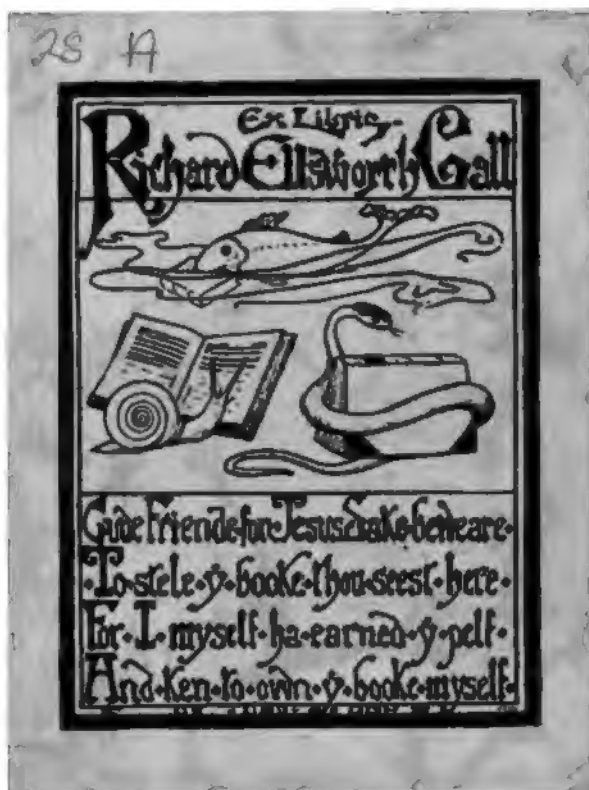 28 A
Ex Libris
Richard Ellsworth Call
Gude Friende for Jesus Sake beweare
To stele y booke thou seest here
For I myself ha earned y pelf
And ken to own y booke myself